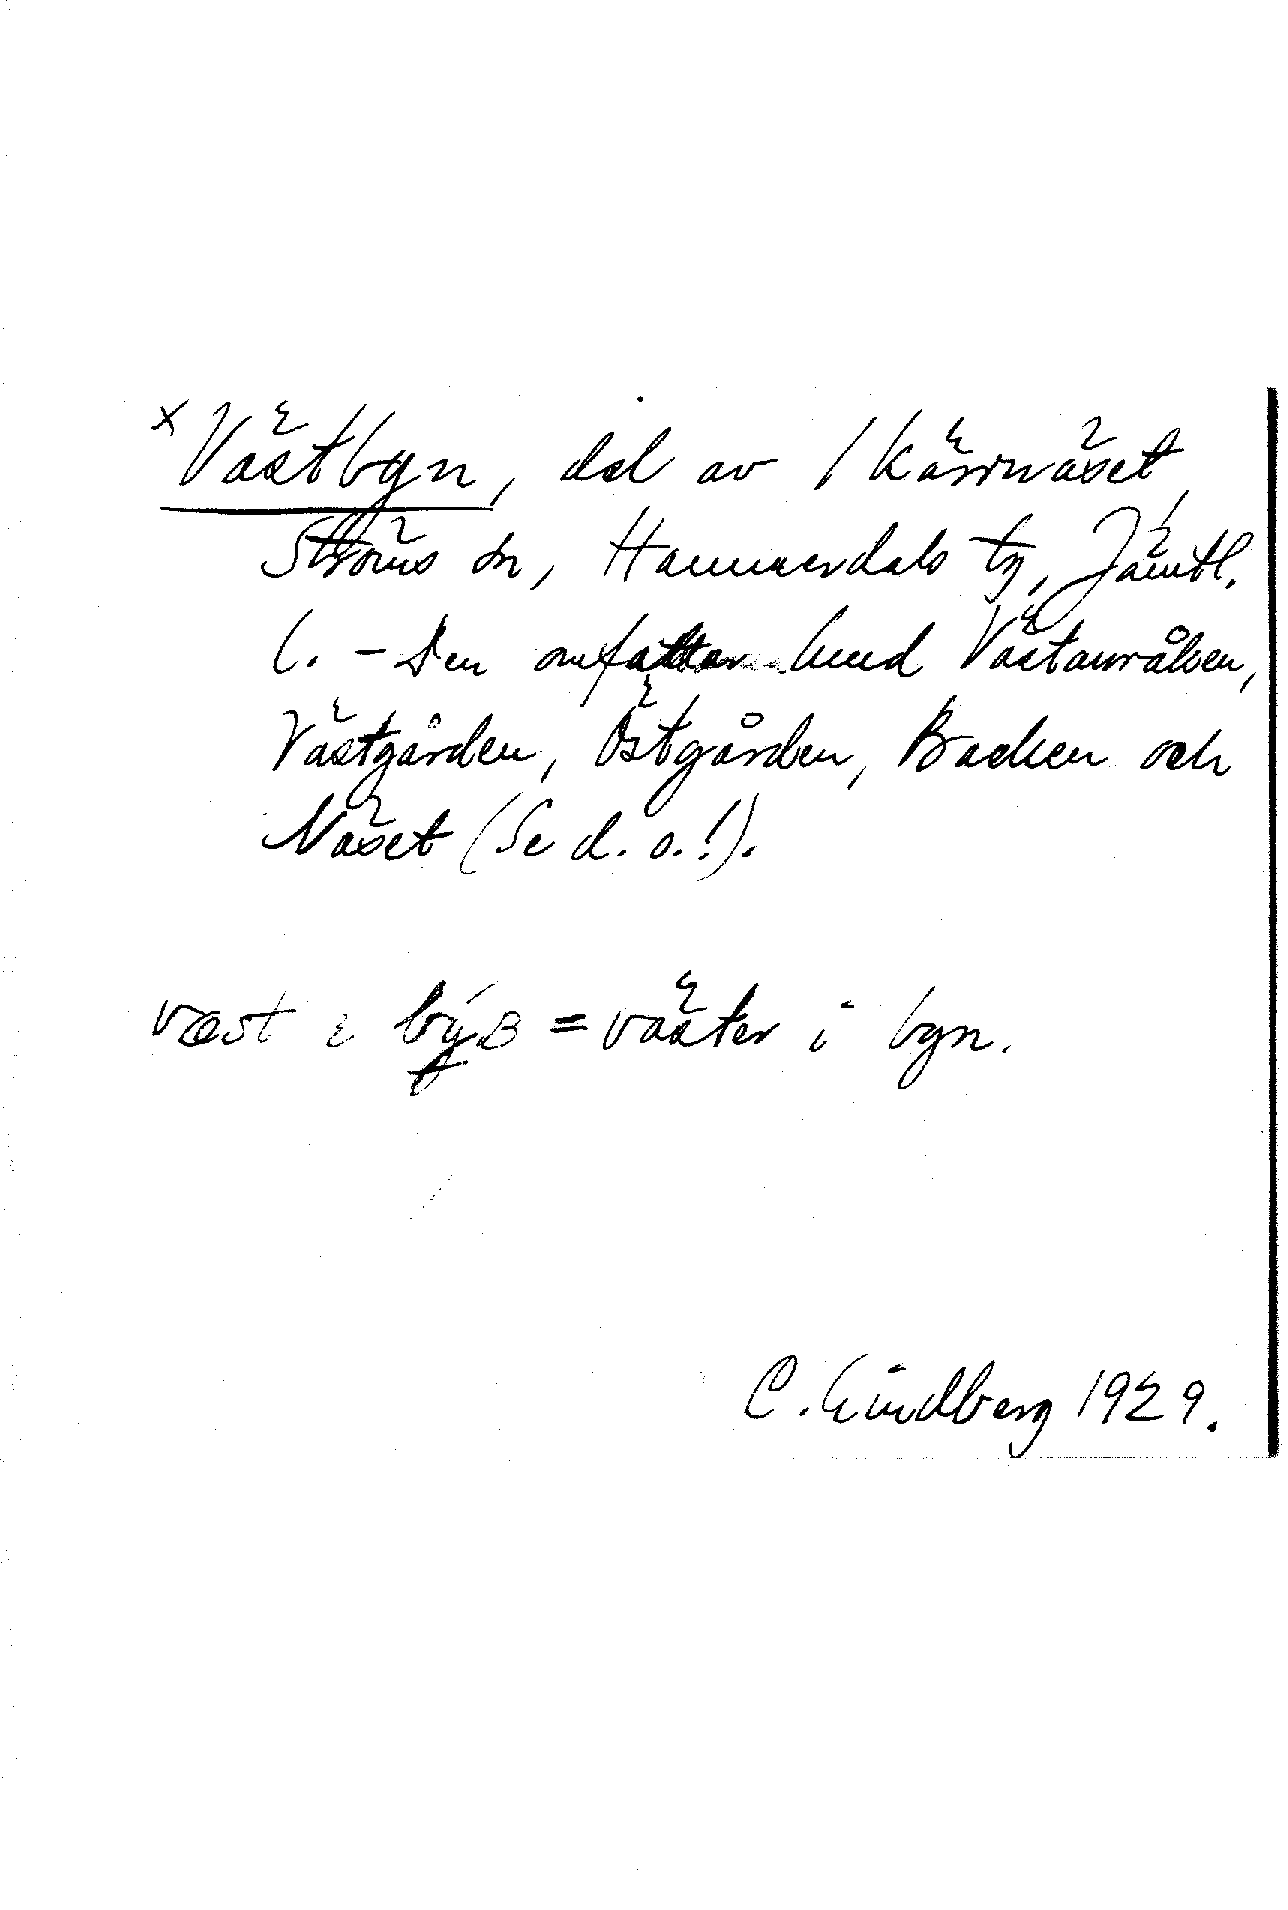 x Västbyn, del av 1 Kärrnäset,
Ströms sn, Hammerdals tg, Jämtl.
l. – Den omfattar hmd Västanråken,
Västgården, Östgården, Backen och
Näset (Se d. o.!).
væst i býɴ = väster i byn.
C. Lindberg 1929.